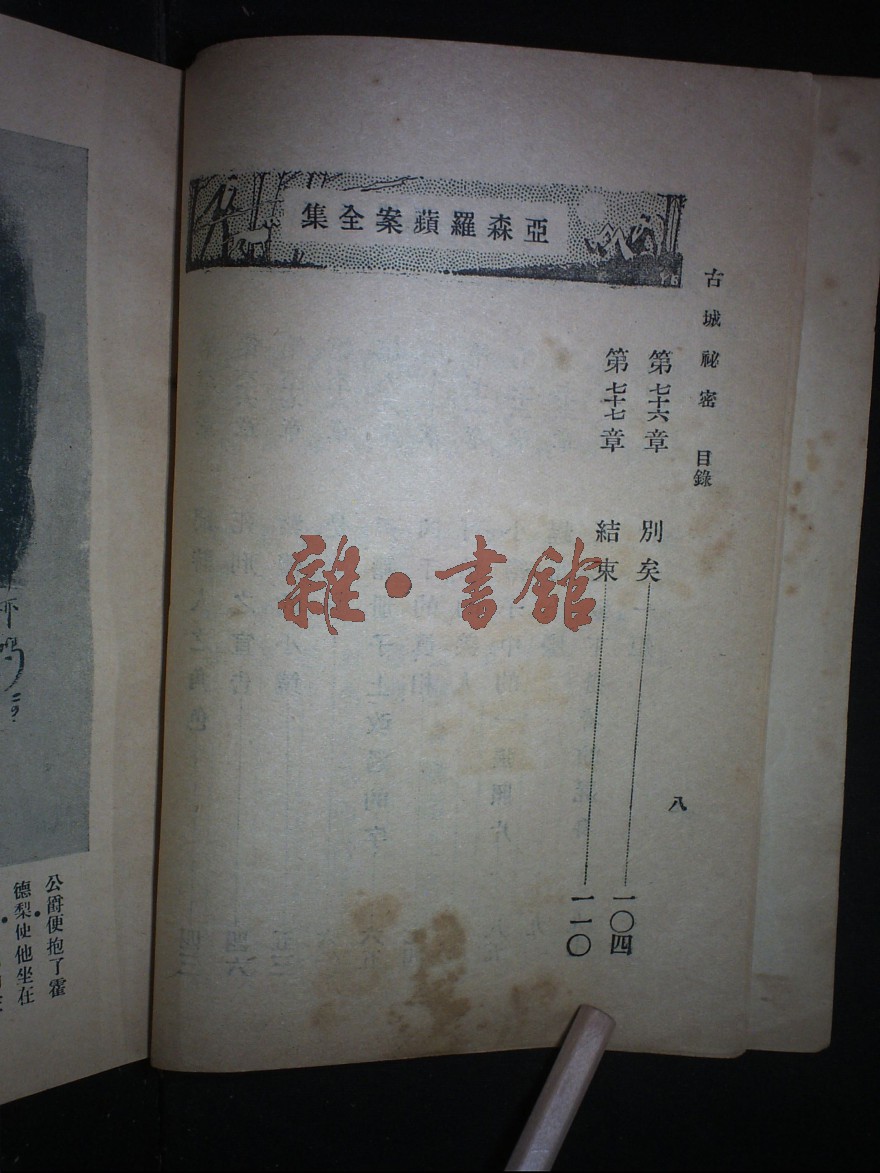 亞森羅蘋案全集
古城祕密 目錄
八
第七十六章 別矣 一〇四
第七十七章 結束 一一〇
雜·書館
公爵便抱了霍
德梨使他坐在